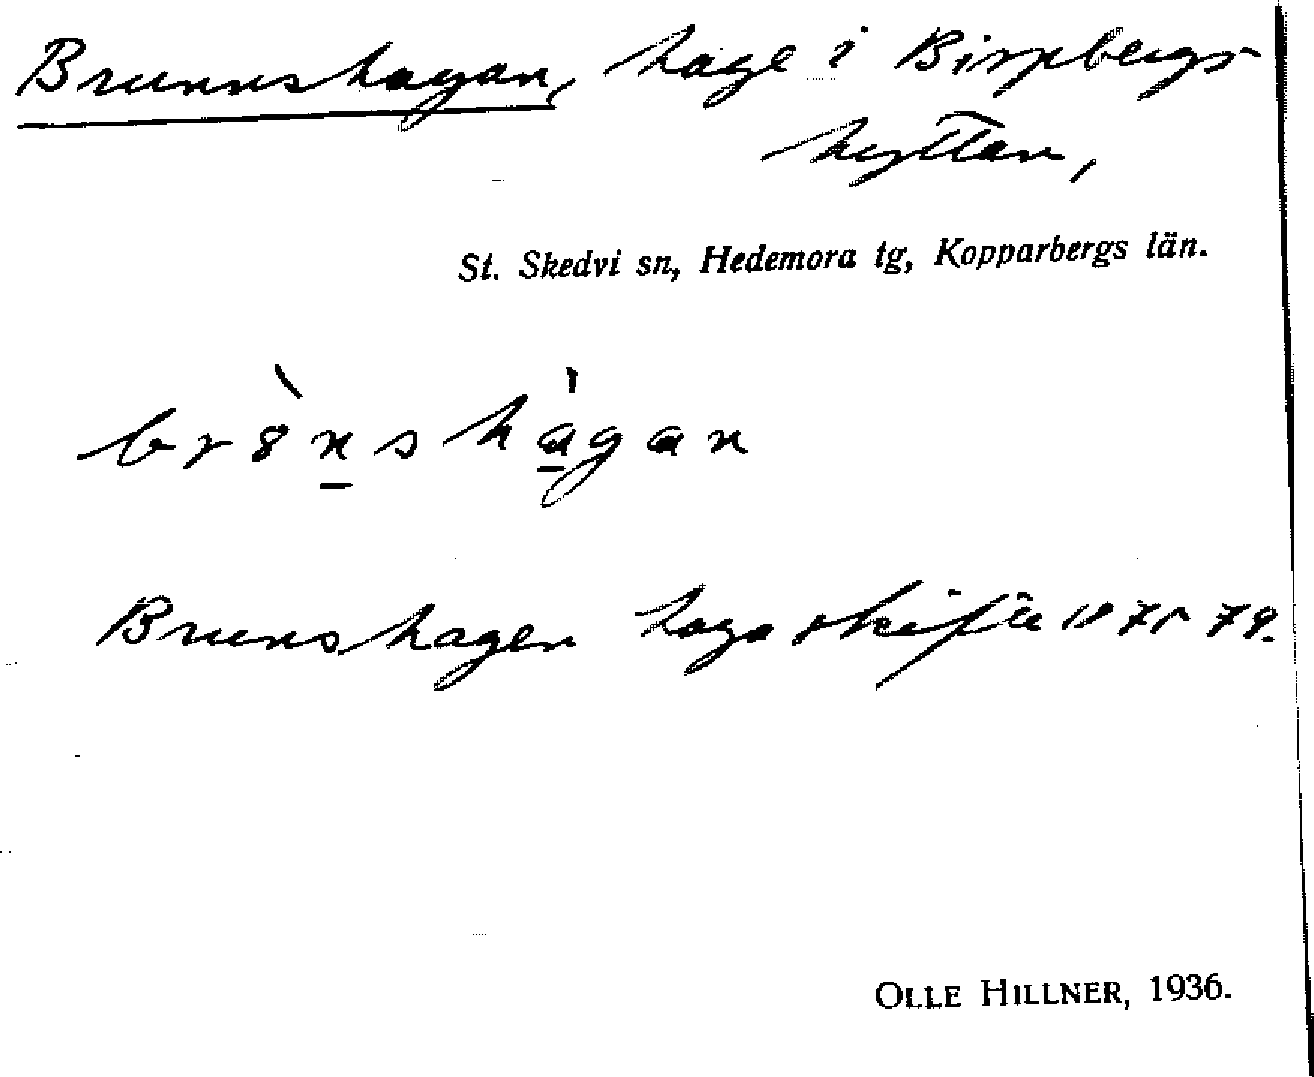 Brunnshagan, hage i Bispbergs-
hyttan,
St. Skedvi sn, Hedemora tg, Kopparbergs län.
br8̀nsha̍gan
Brunshagen laga skifte 1875-79.
OLLE HILLNER, 1936.